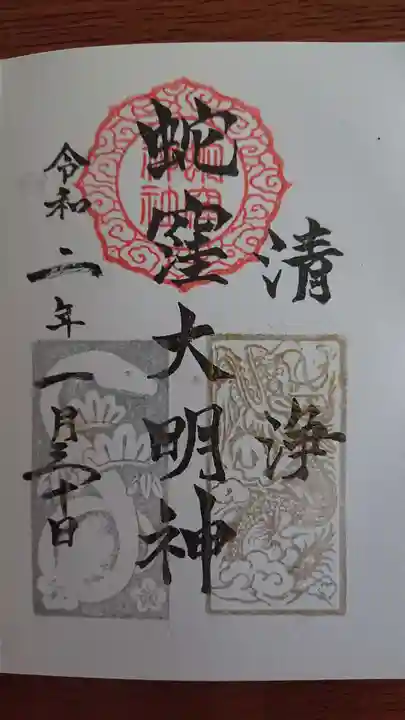 清浄
蛇窪大明神
令和二年一月三十日